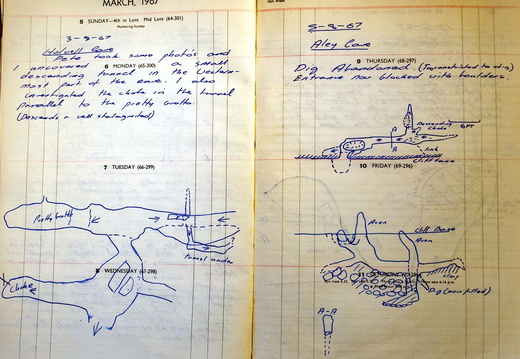 MARCH, 1967
5 SUNDAY—4th in Lent Mid Lent (64-301)
Mothering Sunday
3-9-67
Holwell Cave
Pete took some photos and
I uncovered a small
6 MONDAY (65-300)
descending tunnel in the western-
most part of the cave. I also
investigated the choke in the tunnel
parallel to the pretty grotto.
(Descends & well stalagmited)
7 TUESDAY (66-299)
Pretty Grotto
tunnel under
8 WEDNESDAY (67-298)
Choke
5-9-67
Aley Cave
9 THURSDAY (68-297)
Dig Abandoned.
Entrance now blocked with boulders.
Descending
Choke
6FT
A
A
Cliff Face
10 FRIDAY (69-296)
Aven
Cliff Base
Aven
Clay
Dig (now filled)
A-A